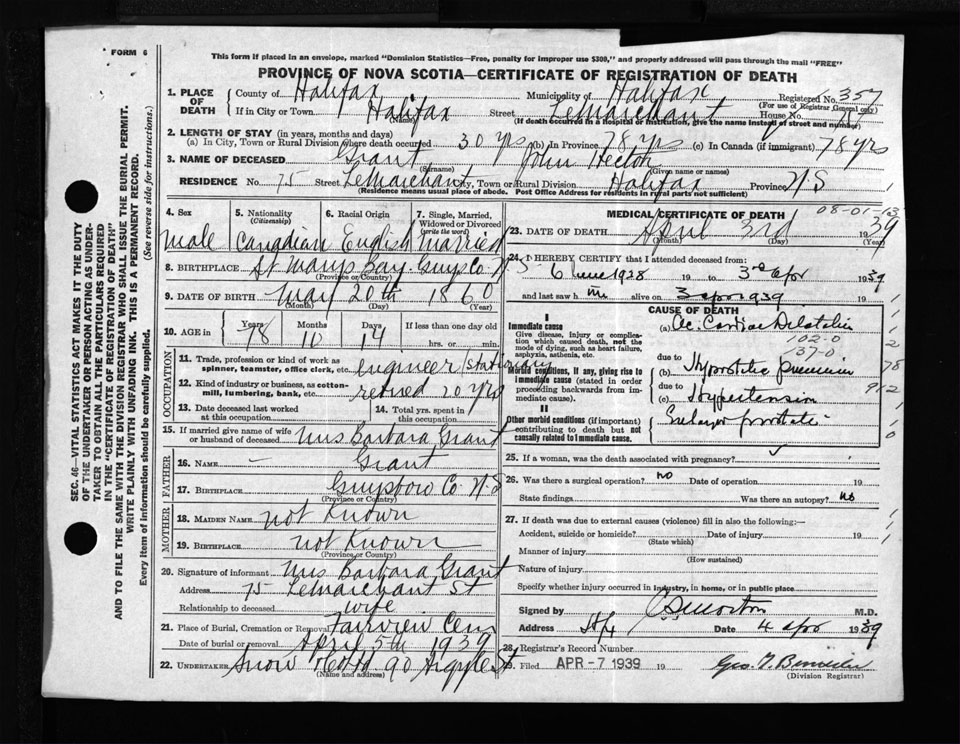 FORM 6
This form if placed in an envelope, marked "Dominion Statistics—Free, penalty for improper use $300," and properly addressed will pass through the mail "FREE"
PROVINCE OF NOVA SCOTIA—CERTIFICATE OF REGISTRATION OF DEATH
SEC. 46—VITAL STATISTICS ACT MAKES IT THE DUTY
OF THE UNDERTAKER OR PERSON ACTING AS UNDER-
TAKER TO OBTAIN ALL THE PARTICULARS REQUIRED
IN THE "CERTIFICATE OF REGISTRATION OF DEATH"
AND TO FILE THE SAME WITH THE DIVISION REGISTRAR WHO SHALL ISSUE THE BURIAL PERMIT.
WRITE PLAINLY WITH UNFADING INK. THIS IS A PERMANENT RECORD.
Every item of information should be carefully supplied. (See reverse side for instructions.)
1. PLACE OF DEATH County of Halifax Municipality of Halifax Registered No. 357
(For use of Registrar General only)
If in City or Town Halifax Street LeMarchant House No.
(If death occurred in a hospital or institution, give the name instead of street and number)
2. LENGTH OF STAY (in years, months and days)
(a) In City, Town or Rural Division where death occurred 30 yrs (b) In Province 78 yrs (c) In Canada (if immigrant) 78 yrs
3. NAME OF DECEASED Grant John Hector
(Surname) (Given name or names)
RESIDENCE No. 75 Street LeMarchant City, Town or Rural Division Halifax Province N.S
(Residence means usual place of abode. Post Office Address for residents in rural parts not sufficient)
4. Sex 5. Nationality (Citizenship) 6. Racial Origin 7. Single, Married, Widowed or Divorced (write the word)
male Canadian English married
8. BIRTHPLACE St Marys Bay Guys Co N.S
(Province or Country)
9. DATE OF BIRTH May 20th 1860
(Month) (Day) (Year)
10. AGE in Years Months Days If less than one day
78 10 14 hrs. or min.
OCCUPATION
11. Trade, profession or kind of work as spinner, teamster, office clerk, etc. Engineer (Stationary
12. Kind of industry or business, as cotton-mill, lumbering, bank, etc. retired 20 yrs
13. Date deceased last worked at this occupation 14. Total yrs. spent in this occupation
15. If married give name of wife or husband of deceased Mrs Barbara Grant
FATHER
16. Name — Grant
17. Birthplace Guysboro Co N.S
(Province or Country)
MOTHER
18. Maiden Name not Known
19. Birthplace not Known
(Province or Country)
20. Signature of informant Mrs Barbara Grant
Address 75 LeMarchant St
Relationship to deceased wife
21. Place of Burial, Cremation or Removal Fairview Cem
Date of burial or removal April 5th 1939
22. UNDERTAKER Snow 90 Argyle St
(Name and address)
MEDICAL CERTIFICATE OF DEATH
08-01-13
23. DATE OF DEATH April 3rd 1939
(Month) (Day) (Year)
24. I HEREBY CERTIFY that I attended deceased from:
6 June 1928 19 to 3rd apr 1939
and last saw him alive on 3 apr 1939
CAUSE OF DEATH
I
Immediate cause
Give disease, injury or complication which caused death, not the mode of dying, such as heart failure, asphyxia, asthenia, etc.
(a) Ac. Cardiac Dilatation
102-0
137-0
Morbid conditions, if any, giving rise to immediate cause (stated in order proceeding backwards from immediate cause).
due to
(b) Hypostatic pneumonia
due to
(c) Hypertension
II
Other morbid conditions (if important) contributing to death but not causally related to immediate cause.
Enlarged prostate
25. If a woman, was the death associated with pregnancy?
26. Was there a surgical operation? no Date of operation 19
State findings Was there an autopsy? no
27. If death was due to external causes (violence) fill in also the following:—
Accident, suicide or homicide? Date of injury 19
(State which)
Manner of injury
(How sustained)
Nature of injury
Specify whether injury occurred in industry, in home, or in public place
Signed by Morton M.D.
Address Hfx Date 4 apr 1939
28. Registrar's Record Number
29. Filed APR -7 1939 19
(Division Registrar)